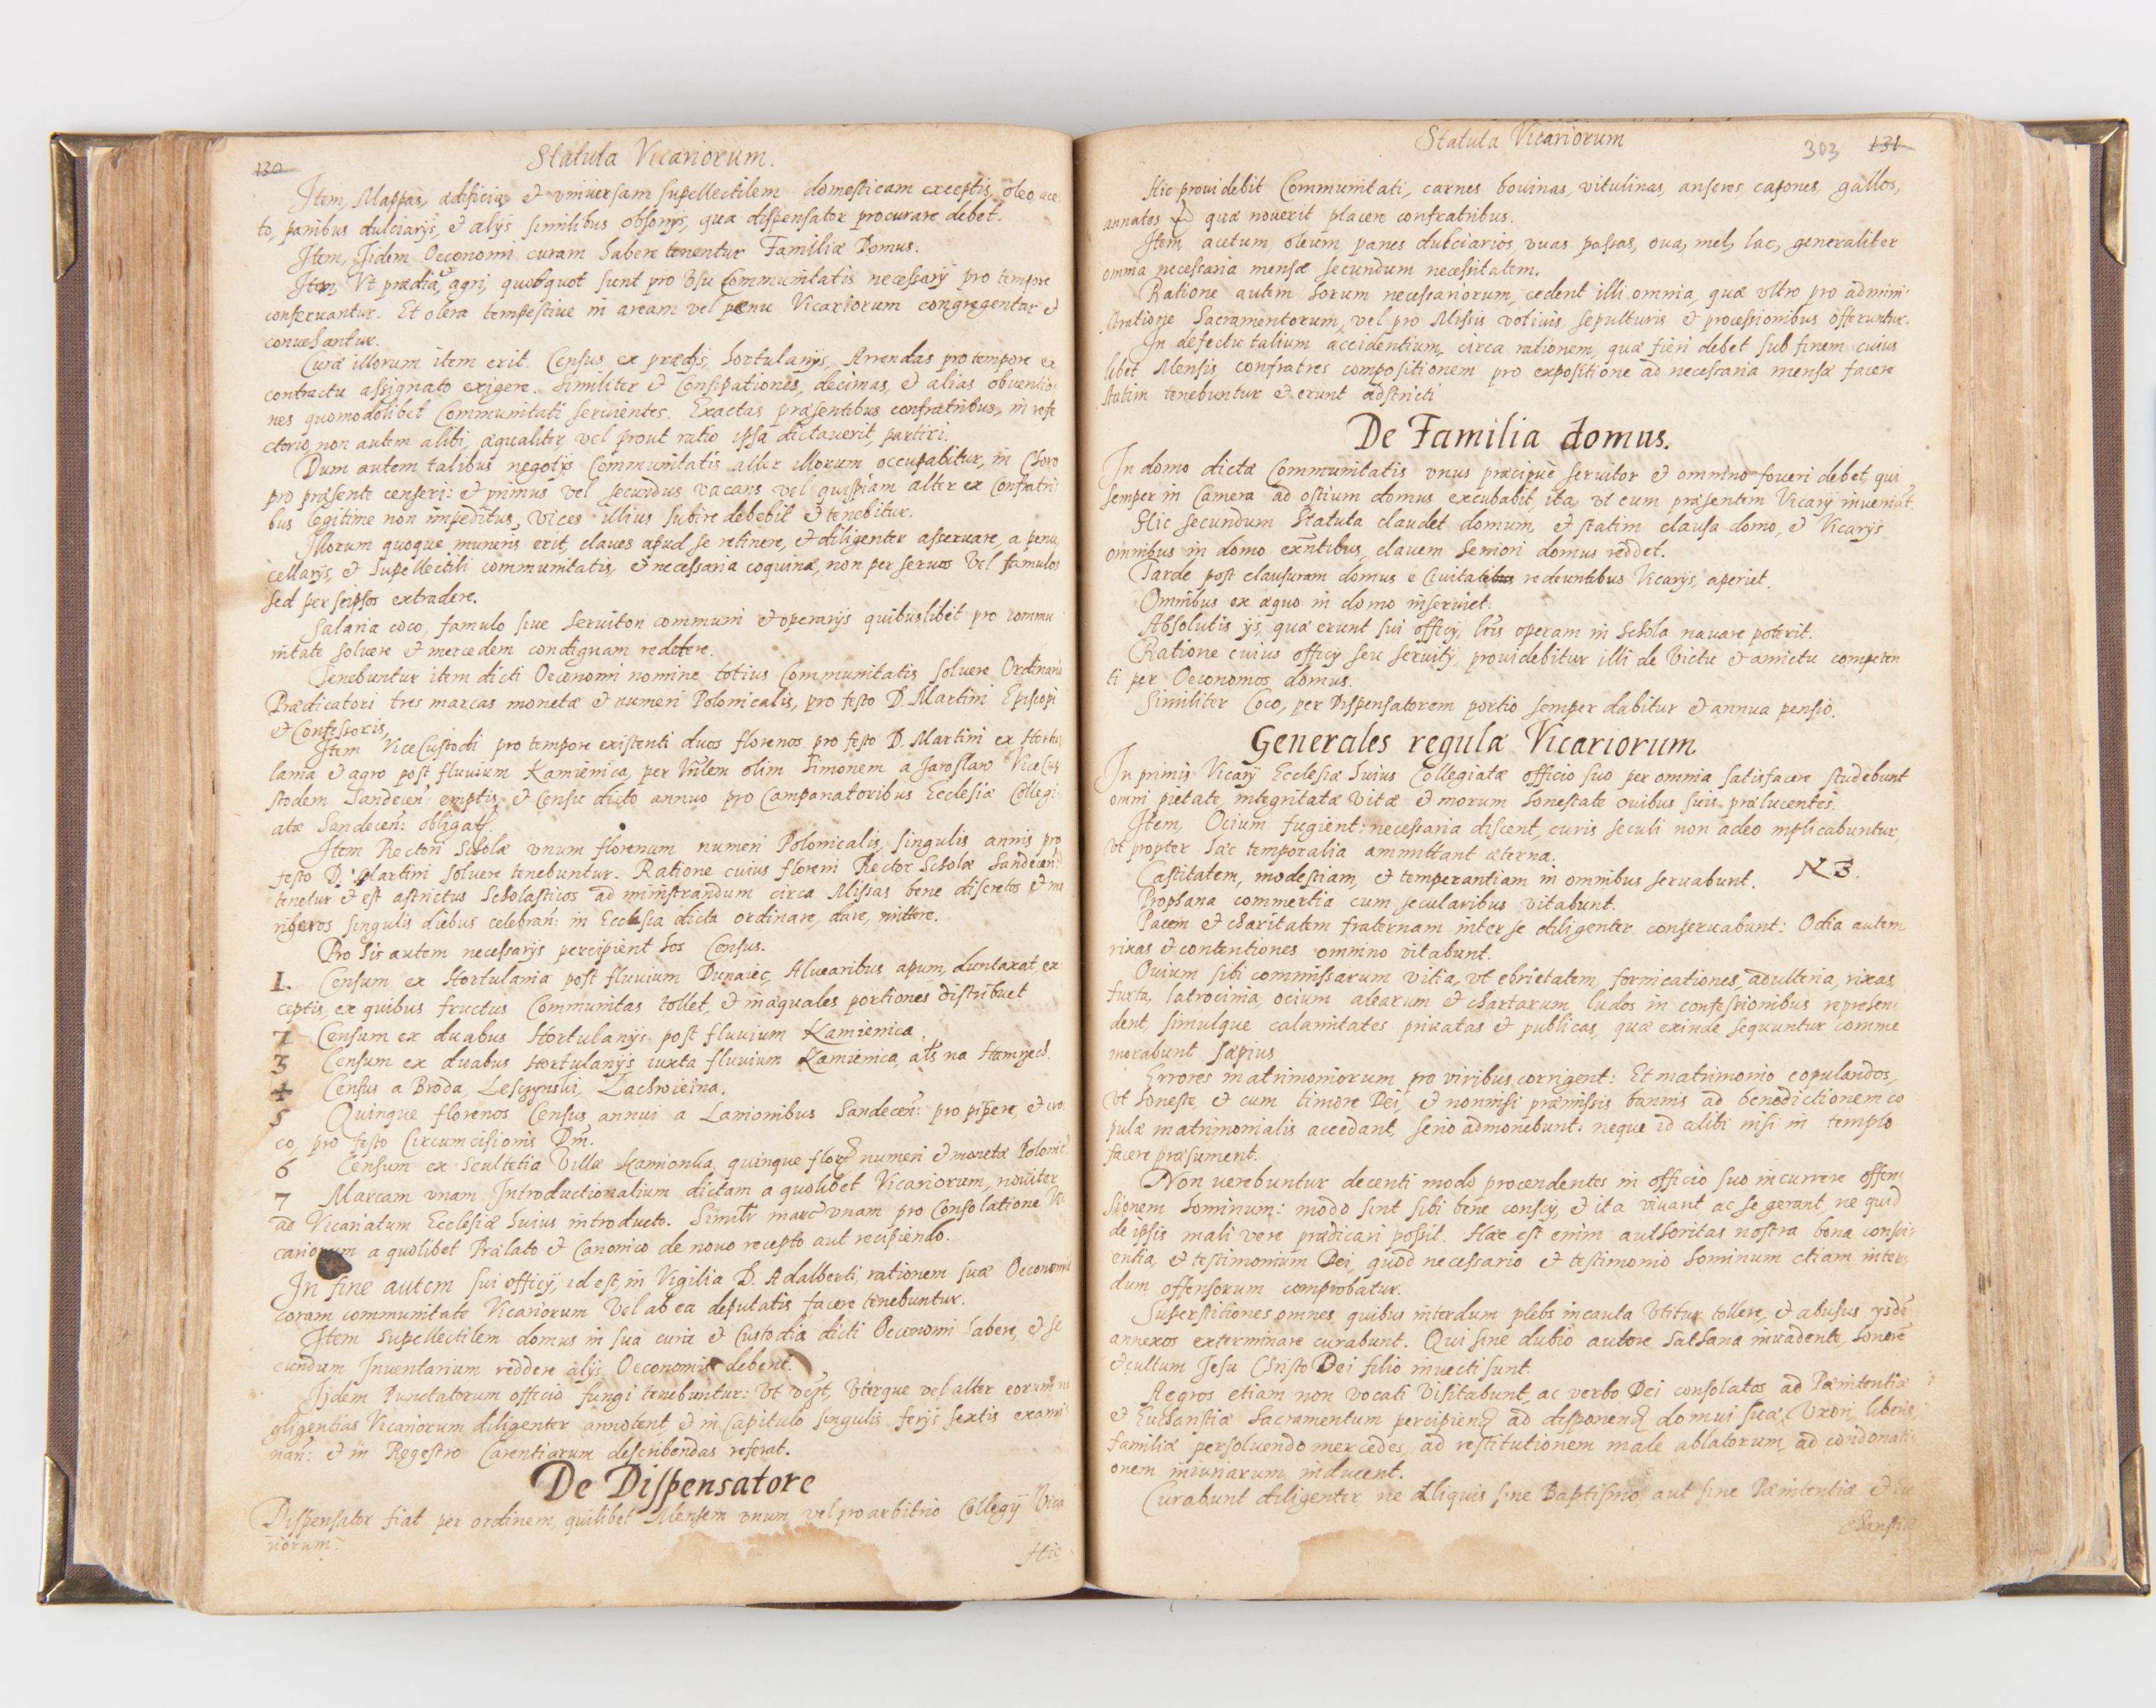 130
Statuta Vicariorum.
Item, Mappas, ædificia et vniversam supellectilem domesticam exceptis, oleo, ace
to, panibus dulciarijs, et alijs similibus obsonijs, quæ dispensator procurare debet.
Item, Iidem Oeconomi curam habere tenentur Familiæ Domus.
Item, Vt prædia, agri, quotquot sunt pro Vsu Communitatis necessarij pro tempore
conseruantur. Et olera tempestiue in aream vel penu Vicariorum congregentur et
conuehantur.
Curæ illorum item erit. Census ex prædijs, hortulanijs, Arrendas pro tempore ex
contractu assignato exigere. Similiter et Consipationes, decimas, et alias obuentio
nes quomodolibet Communitati seruientes. Exactas præsentibus confratribus, in refe
ctorio, non autem alibi, æqualiter, vel prout ratio ipsa dictauerit, partiri.
Dum autem talibus negotijs Communitatis alter illorum occupabitur, in Choro
pro præsente censeri: et primus vel secundus vacans vel quispiam alter ex Confratri
bus legitime non impeditus, vices illius subire debebit et tenebitur.
Illorum quoque muneris erit, claues apud se retinere, et diligenter asseruare, a penu,
cellarijs, et Supellectili communitatis, et necessaria coquinæ, non per seruos Vel famulos
sed per seipsos extradere.
Salaria coco, famulo siue Seruitori communi et operarijs quibuslibet pro commu
nitate soluere et mercedem condignam reddere.
Tenebuntur item dicti Oeconomi nomine totius Communitatis soluere Ordinario
Prædicatori tres marcas monetæ et numeri Polonicalis, pro festo D. Martini Episcopi
et Confessoris,
Item ViceCustodi pro tempore existenti duos florenos pro festo D. Martini ex Hortu
lania et agro post fluuium Kamienica, per Vñlem olim Simonem a Jaroslaw ViceCu
stodem Sandecen: emptis, et Censu dicto annuo pro Campanatoribus Ecclesiæ Collegi
atæ Sandecen: obligat.
Item Rectori Scholæ vnum florenum numeri Polonicalis, singulis annis pro
festo D. Martini soluere tenebuntur. Ratione cuius floreni Rector Scholæ Sandecen:
tenetur et est astrictus Scholasticos ad ministrandum circa Missas bene discretos et mo
rigeros singulis diebus celebran: in Ecclesia dicta ordinare, dare, mittere.
Pro his autem necessarijs percipient hos Census.
1. Censum ex Hortulania post fluvium Dunaiec, Aluearibus apum, duntaxat ex
ceptis, ex quibus fructus Communitas tollet, et inæquales portiones distribuet
7 Censum ex duabus Hortulanijs post fluuium Kamienica.
3 Censum ex duabus Hortulanijs iuxta fluuium Kamienica, als na Hamrzech.
4 Census a Broda, Lesczynski, Lachowiczna.
5 Quinque florenos Census annui a Lanionibus Sandecen: pro pipere, et cro
co, pro festo Circumcisionis Dni.
6 Censum ex Scultetia Villæ Kamionka, quinque flor numeri et monetæ Polonic
7 Marcam vnam Introductionalium dictam a quolibet Vicariorum, nouiter
ad Vicariatum Ecclesiæ huius introducto. Similr marc vnam pro Consolatione Vi
cariorum a quolibet Prælato et Canonico de nouo recepto aut recipiendo.
In fine autem sui officij, id est, in Vigilia D. Adalberti, rationem suæ Oeconomiæ
coram communitate Vicariorum Vel ab ea deputatis facere tenebuntur.
Item Supellectilem domus in sua cura et Custodia dicti Oeconomi habere, et se
cundum Inuentarium reddere alijs Oeconomis debent.
Iidem Punctatorum officio fungi tenebuntur: Vt vczt, Vterque vel alter eorum ne
gligentias Vicariorum diligenter annotent, et in Capitulo singulis ferijs sextis exami
nan: et in Regestro Carentiarum describendas referat.
De Dispensatore
Dispensator fiat per ordinem, quilibet Mensem vnum, vel pro arbitrio Collegij Vica
riorum.
Hic
Statuta Vicariorum
303 131
Hic prouidebit Communitati, carnes bouinas, vitulinas, anseres, capones, gallos,
annates quæ nouerit placere confratribus.
Item, acetum, oleum, panes dulciarios, vuas passas, oua, mel, lac, generaliter
omnia necessaria mensæ secundum necessitatem.
Ratione autem horum necessariorum, cedent illi omnia, quæ vltro pro admini
stratione Sacramentorum, vel pro Missis votiuis, sepulturis et processionibus offeruntur.
In defectu talium accidentium, circa rationem, quæ fieri debet sub finem cuius
libet Mensis, confratres compositionem pro expositione ad necessaria mensæ facere
statim tenebuntur et erunt adstricti
De Familia domus.
In domo dictæ Communitatis vnus præcipuè seruitor et omnino foueri debet, qui
semper in Camera ad ostium domus excubabit, ita, vt eum præsentem Vicarij inueniat.
Hic secundum Statuta claudet domum, et statim clausa domo, et Vicarijs
omnibus in domo exñtibus, clauem Seniori domus reddet.
Tarde post clausuram domus e Ciuitate redeuntibus Vicarijs, aperiet.
Omnibus ex æquo in domo inseruiet.
Absolutis ijs, quæ erunt sui officij, lris operam in Schola nauare poterit.
Ratione cuius officij seu seruitij, prouidebitur illi de Victu et amictu competen
ti per Oeconomos domus.
Similiter Coco, per Dispensatorem portio semper dabitur et annua pensio.
Generales regulæ Vicariorum
In primis Vicarij Ecclesiæ huius Collegiatæ officio suo per omnia satisfacere studebunt
omni pietate, integritate vitæ et morum honestate ouibus suis prælucentes.
Item, Ocium fugient: necessaria discent, curis seculi non adeo implicabuntur,
vt propter hæc temporalia ammittant æterna.
Castitatem, modestiam, et temperantiam in omnibus seruabunt. NB.
Prophana commertia cum secularibus vitabunt.
Pacem et charitatem fraternam inter se diligenter conseruabunt: Odia autem
rixas et contentiones omnino vitabunt.
Ouium sibi commissarum vitia, vt ebrietatem, fornicationes, adulteria, rixas,
furta, latrocinia, ocium alearum et chartarum ludos in confessionibus reprehen
dent, simulque calamitates priuatas et publicas, quæ exinde sequuntur comme
morabunt sæpius
Errores matrimoniorum, pro viribus corrigent: Et matrimonio copulandos,
vt honeste, et cum timore Dei, et nonnisi præmissis bannis ad benedictionem co
pulæ matrimonialis accedant, serio admonebunt: neque id alibi nisi in templo
facere præsument.
Non uerebuntur decenti modo procendentes in officio suo incurrere offen
sionem hominum: modo sint sibi bene conscij, et ita viuant, ac se gerant, ne quid
de ipsis mali vere prædicari possit. Hæc est enim authoritas nostra bona consci
entia, et testimonium Dei, quod necessario et testimonio hominum etiam inter
dum offensorum comprobatur.
Superstitiones omnes, quibus interdum plebs incauta Vtitur, tollere, et abusus ysdē
annexos exterminare curabunt. Qui sine dubio autore Sathana inuadente, honorē
et cultum Jesu Christo Dei filio inuecti sunt.
Aegros etiam non vocati Visitabunt, ac verbo Dei consolatos ad Pænitentiæ
et Eucharistiæ Sacramentum percipien ad disponen domui suæ, Vxori, liberis,
familiæ persoluendo mercedes, ad restitutionem male ablatorum, ad condonati
onem iniuriarum, inducent.
Curabunt diligenter ne aliquis sine Baptismo, aut sine Pænitentiæ et Eu
charistiæ